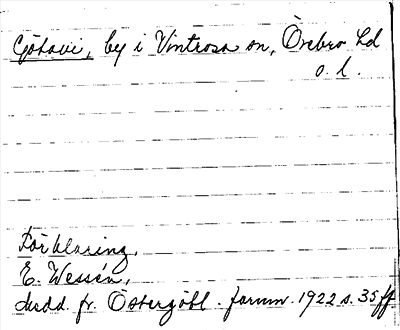 Götavi, by i Vintrosa sn, Örebro hd
o. l.
Förklaring,
E. Wessén,
Medd. fr. Östergötl. fornm. 1922 s. 35 ff